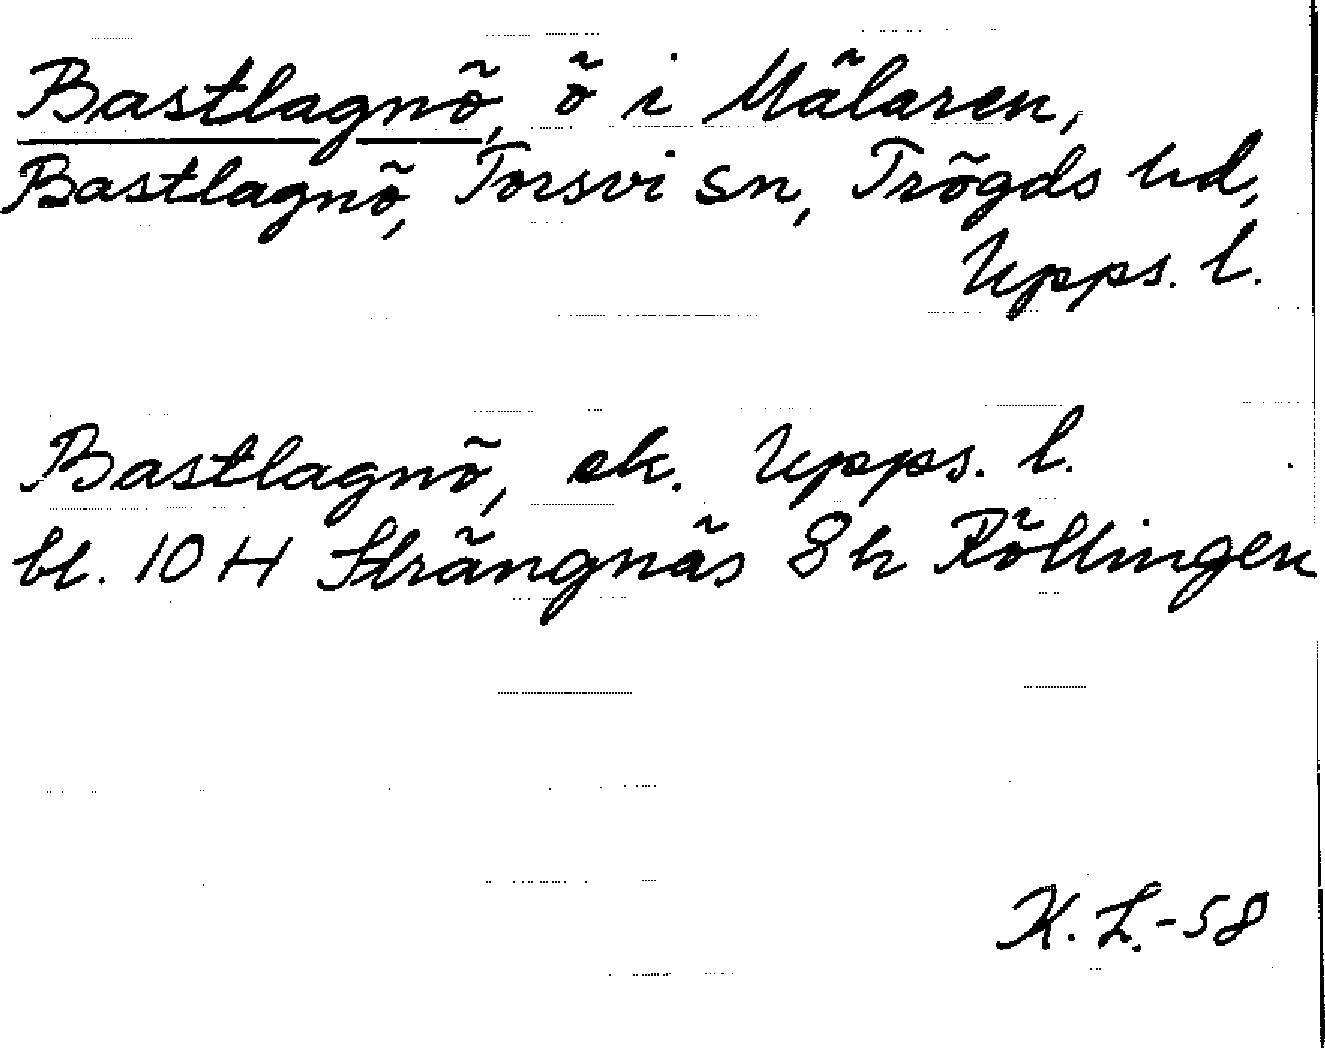 Bastlagnö, ö i Mälaren,
Bastlagnö, Torsvi sn, Trögds hd,
Upps. l.
Bastlagnö, ek. Upps. l.
bl. 10 H Strängnäs 8 h Röllingen
K. L.-58